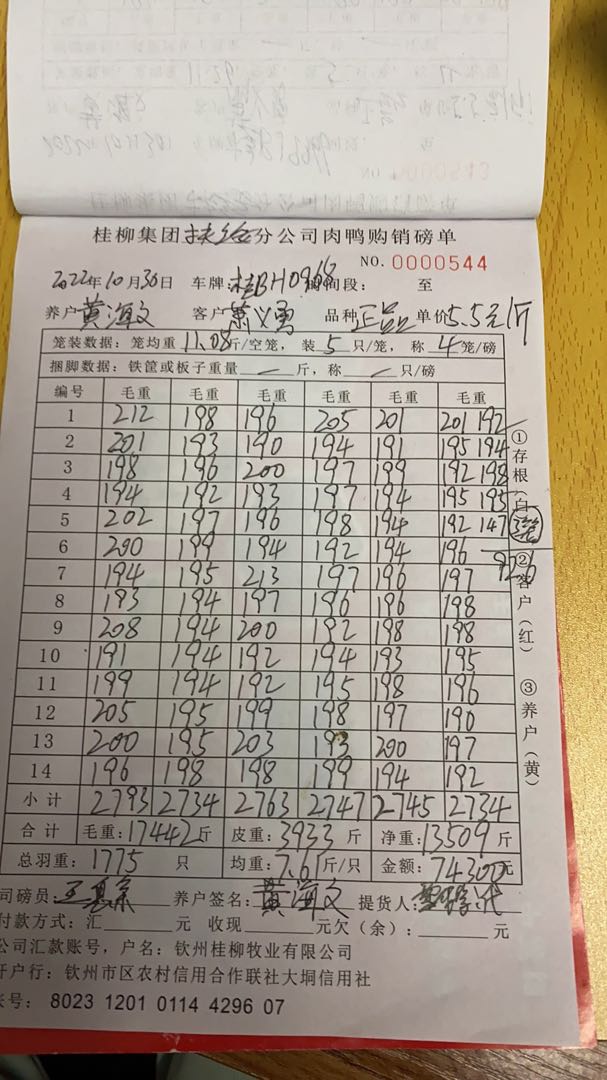 0000543
桂柳集团扶绥分公司肉鸭购销磅单
NO. 0000544
2022年10月30日 车牌:桂BH0968 时间段: 至
养户黄海文 客户萧义勇 品种正品 单价5.5元/斤
笼装数据:笼均重11.08斤/空笼,装5只/笼,称4笼/磅
捆脚数据:铁筐或板子重量—斤,称—只/磅
编号 毛重 毛重 毛重 毛重 毛重 毛重
1 212 198 196 205 201 201 192
2 201 193 190 194 191 195 194
3 198 196 200 197 199 192 198
4 194 192 193 197 194 195 195
5 202 197 196 198 194 192 147
6 200 199 194 192 194 196
926
7 194 195 213 197 196 197
8 193 194 197 196 196 198
9 208 194 200 192 198 198
10 191 194 192 194 193 195
11 199 194 192 195 198 196
12 205 195 199 198 197 190
13 200 195 203 193 200 197
14 196 198 198 199 194 192
小计 2793 2734 2763 2747 2745 2734
合计 毛重:17442斤 皮重:3933斤 净重:13509斤
总羽重:1775只 均重:7.61斤/只 金额:74300元
司磅员: 养户签名:黄海文 提货人:
付款方式:汇 元 收现 元欠(余): 元
公司汇款账号,户名:钦州桂柳牧业有限公司
开户行:钦州市区农村信用合作联社大垌信用社
账号: 8023 1201 0114 4296 07
①存根(白)
②客户(红)
③养户(黄)